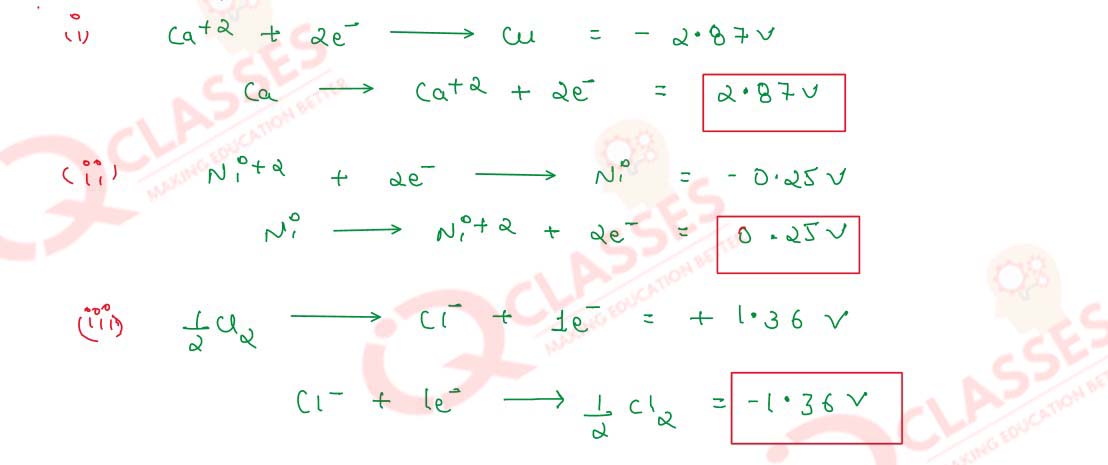 (i) Ca+2 + 2e- ⟶ Cu = - 2.87 V
Ca ⟶ Ca+2 + 2e- = 2.87 V
(ii) Ni+2 + 2e- ⟶ Ni = - 0.25 V
Ni ⟶ Ni+2 + 2e- = 0.25 V
(iii) 1/2 Cl2 ⟶ Cl- + 1e- = + 1.36 V
Cl- + 1e- ⟶ 1/2 Cl2 = -1.36 V
CLASSES
MAKING EDUCATION BETTER
CLASSES
MAKING EDUCATION BETTER
CLASSES
MAKING EDUCATION BETTER